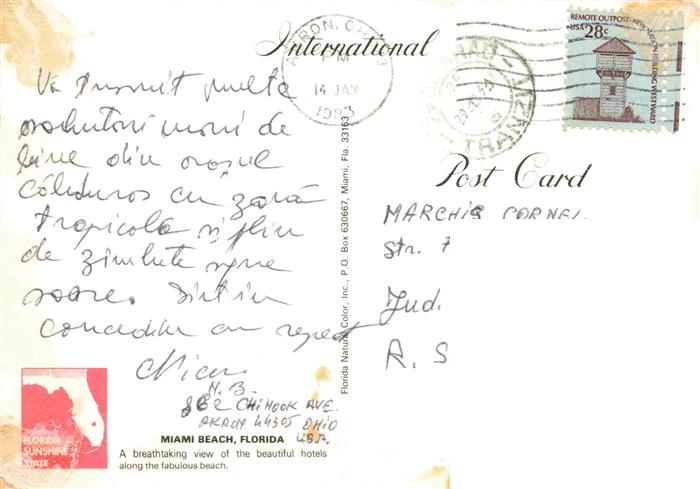 International
Post Card
AKRON, OH 443
PM
14 JAN
1983
TRANZIT
REMOTE OUTPOST·NEW NATION BUILDING WESTWARD
USA 28c
Vă transmit multe
de
bine din orașul
călduros cu zonă
tropicala și plin
de zimbete spre
soare. Sint in
concediu cu respect
N.B.
862 CHINOOK AVE.
AKRON 44305 OHIO
USA.
MARCHIȘ CORNEL
Str. 7
Jud.
R. S
Florida Natural Color, Inc., P.O. Box 630667, Miami, Fla. 33163
FLORIDA
SUNSHINE
STATE
MIAMI BEACH, FLORIDA
A breathtaking view of the beautiful hotels
along the fabulous beach.